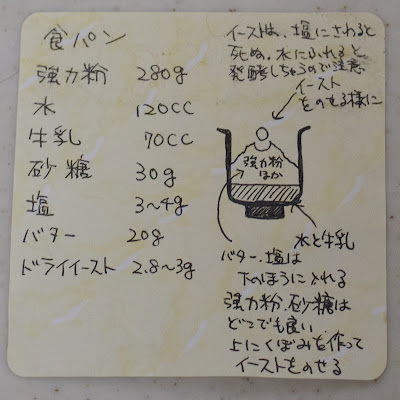 食パン
強力粉 280g
水 120cc
牛乳 70cc
砂糖 30g
塩 3~4g
バター 20g
ドライイースト 2.8~3g
イーストは、塩にさわると
死ぬ。水にふれると
発酵しちゃうので注意
イースト
をのせる様に
強力粉
ほか
水と牛乳
バター、塩は
下のほうにいれる
強力粉、砂糖は
どこでも良い
上にくぼみを作って
イーストをのせる